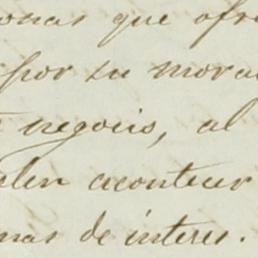 onas que ofre
por su mora
negocis, al
den acontecer
mas de interes.